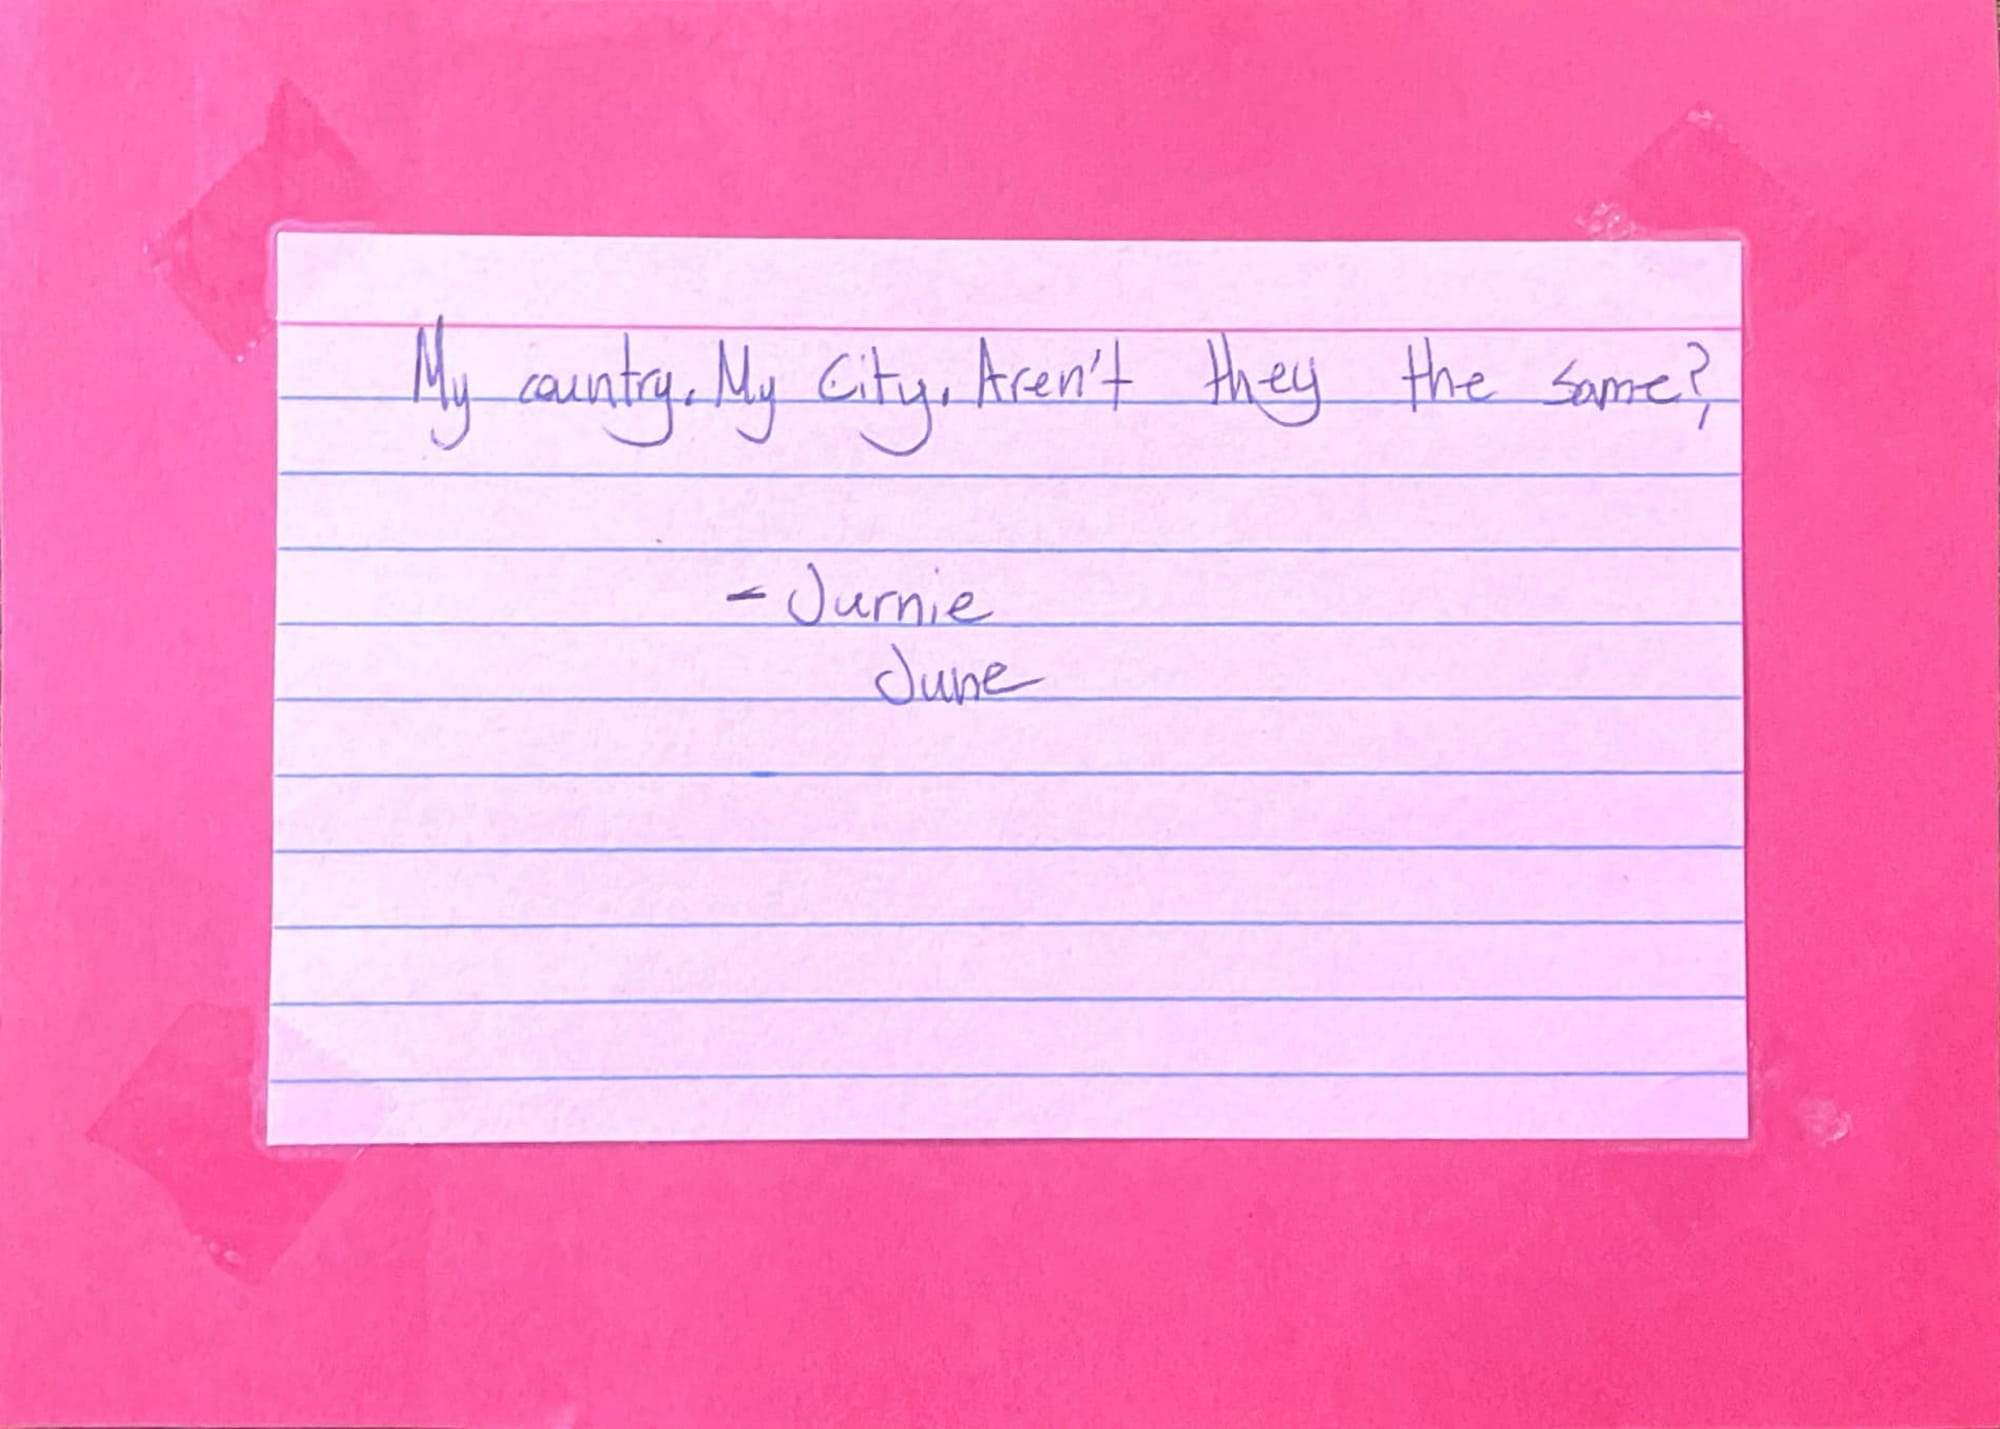 My country. My City. Aren't they the same?
- Jurnie
June